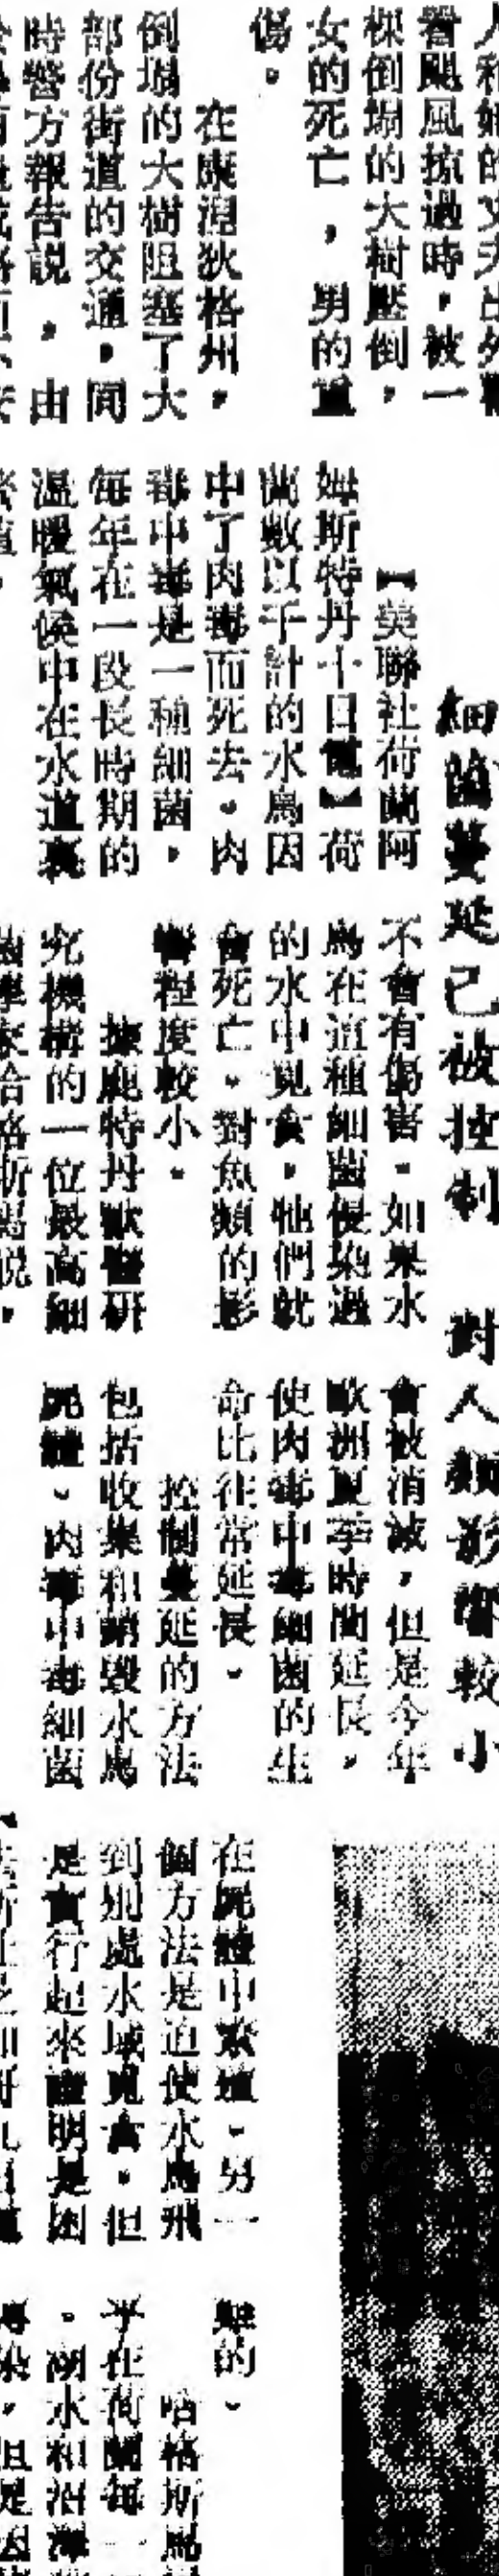 看颶風掠過時，被一
棵倒塌的大樹壓倒，
女的死亡，男的重
傷。
在康涅狄格州，
倒塌的大樹阻塞了大
部份街道的交通，同
時警方報告說，由
細菌蔓延已被控制 對人類影響較小
【美聯社荷蘭阿
姆斯特丹十日電】荷
蘭數以千計的水鳥因
中了肉毒而死去。肉
毒中毒是一種細菌，
每年在一段長時期的
溫暖氣候中在水道裏
不會有傷害。如果水
鳥在這種細菌侵染過
的水中覓食，牠們就
會死亡。對魚類的影
響程度較小。
據鹿特丹獸醫研
究機構的一位最高細
菌學家哈格斯瑪說，
會被消滅，但是今年
歐洲夏季時間延長，
使肉毒中毒細菌的生
命比往常延長。
控制蔓延的方法
包括收集和銷毀水鳥
屍體。肉毒中毒細菌
在屍體中繁殖。另一
個方法是迫使水鳥飛
到別處水域覓食。但
是實行起來證明是困
難的。
哈格斯瑪
乎在荷蘭每一
。湖水和沼澤